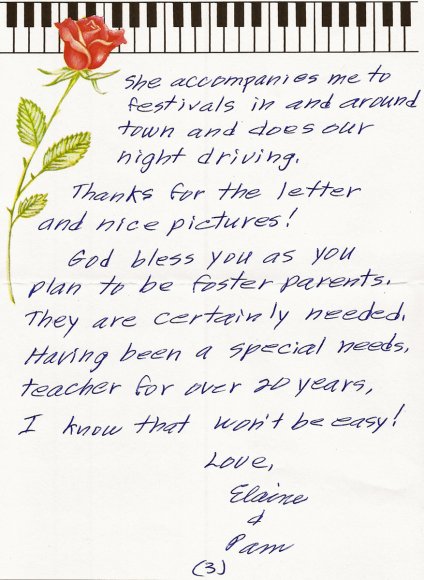 She accompanies me to
festivals in and around
town and does our
night driving.
Thanks for the letter
and nice pictures!
God bless you as you
plan to be foster parents.
They are certainly needed.
Having been a special needs,
teacher for over 20 years,
I know that won't be easy!
Love,
Elaine
&
Pam
(3)